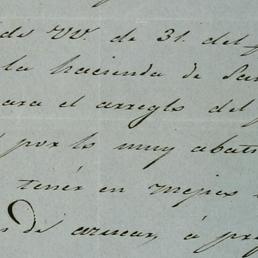 de VV. de 31. del
la hacienda de San
para el arreglo del
por lo muy abati
tener en mejor
de azucar, á pre